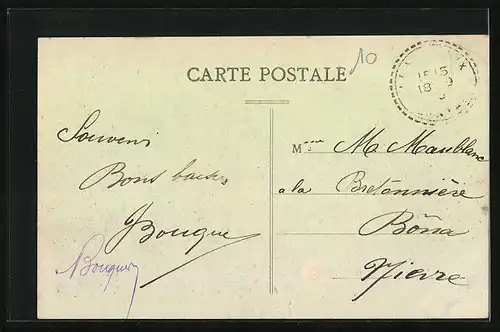 10
CARTE POSTALE
15 15
18
Souvenir
Bons baisers
Bouque
Bouque
Mme Ma Maublanc
a la Bretonnière
Bôna
Nievre